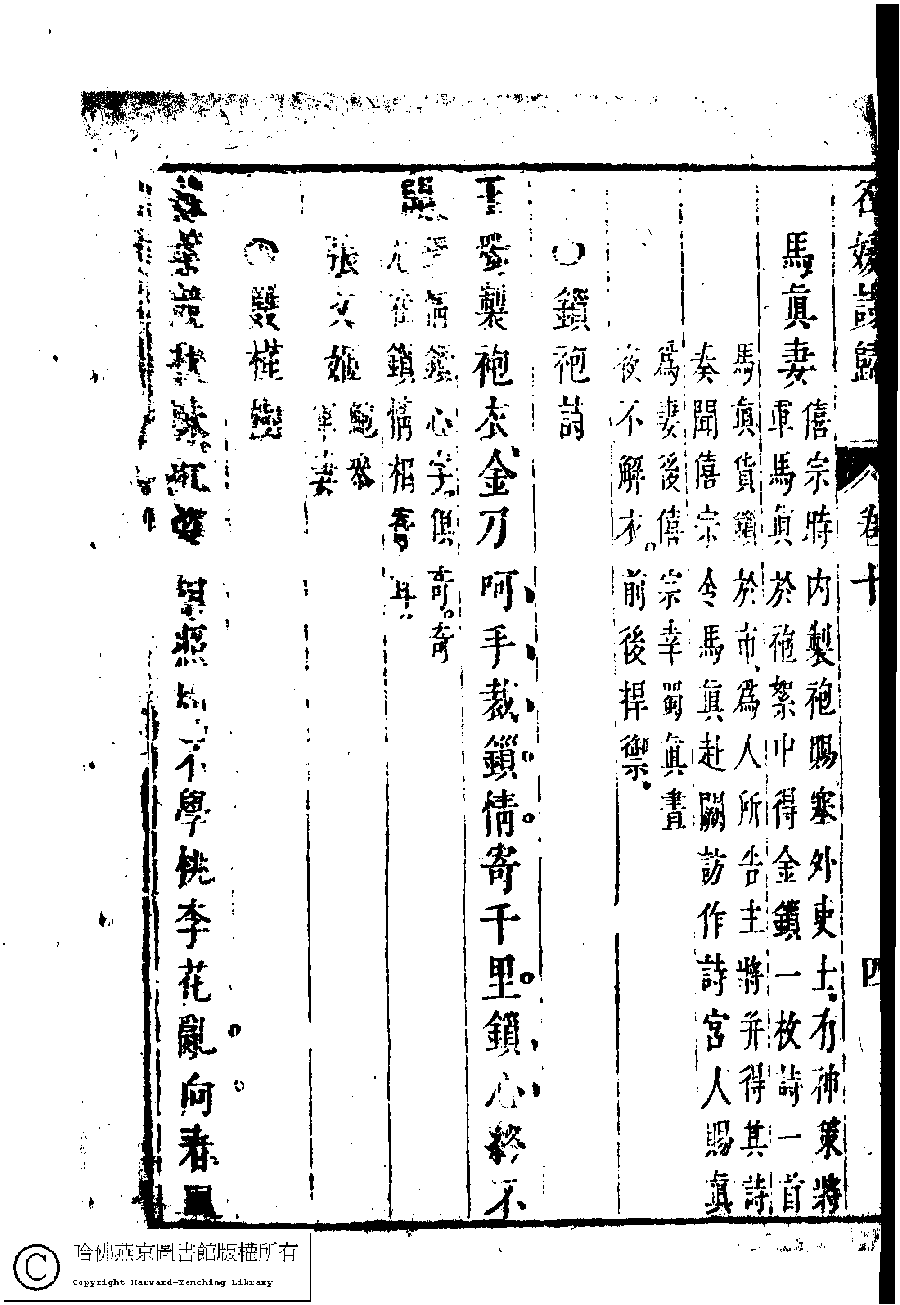 名媛詩歸 卷十 四
馬眞妻
僖宗時內製袍賜塞外吏士有神策將
軍馬眞於袍絮中得金鎖一枚詩一首
馬眞貨鎖於市爲人所告主將并得其詩
奏聞僖宗令馬眞赴闕訪作詩宮人賜眞
爲妻後僖宗幸蜀眞晝
夜不解衣。前後捍禦
○鎖袍詩
玉燭製袍衣金刀呵手裁鎖情寄千里鎖心終不
開
字俱奇。奇
在鎖情相寄耳
張文姬 鮑參軍妻
○雙槿樹
不學桃李花亂向春
哈佛燕京圖書館版權所有
Copyright Harvard-Yenching Library